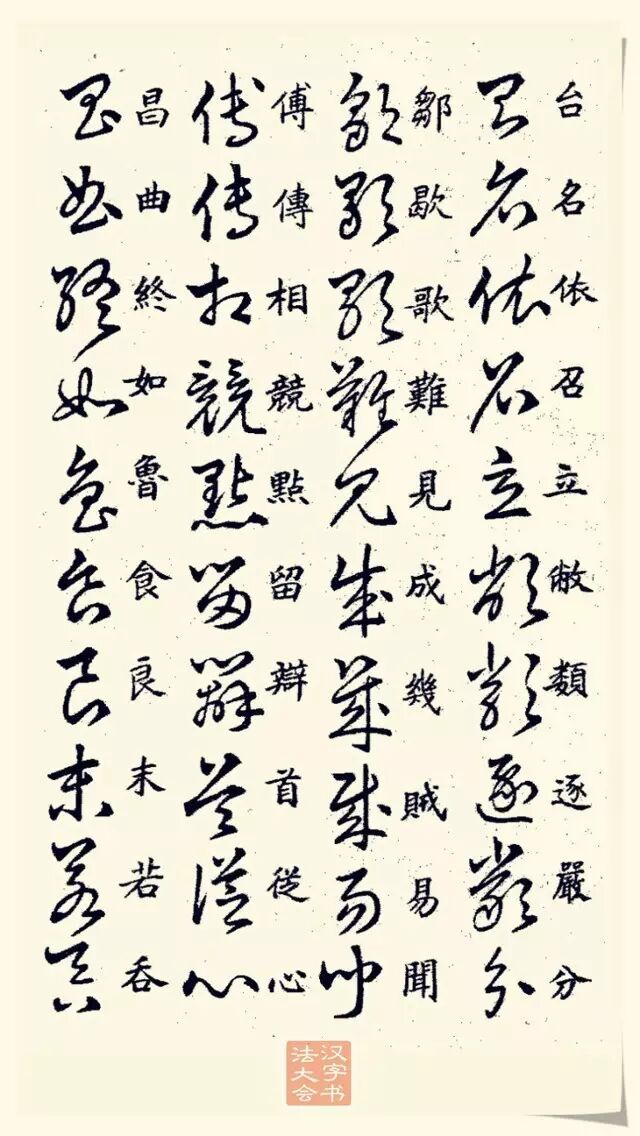 台名依召立敝類逐嚴分
鄒歇歌難見成幾賊易聞
傅傳相競點留辯首從心
昌曲終如魯食良末若吞
汉字书
法大会